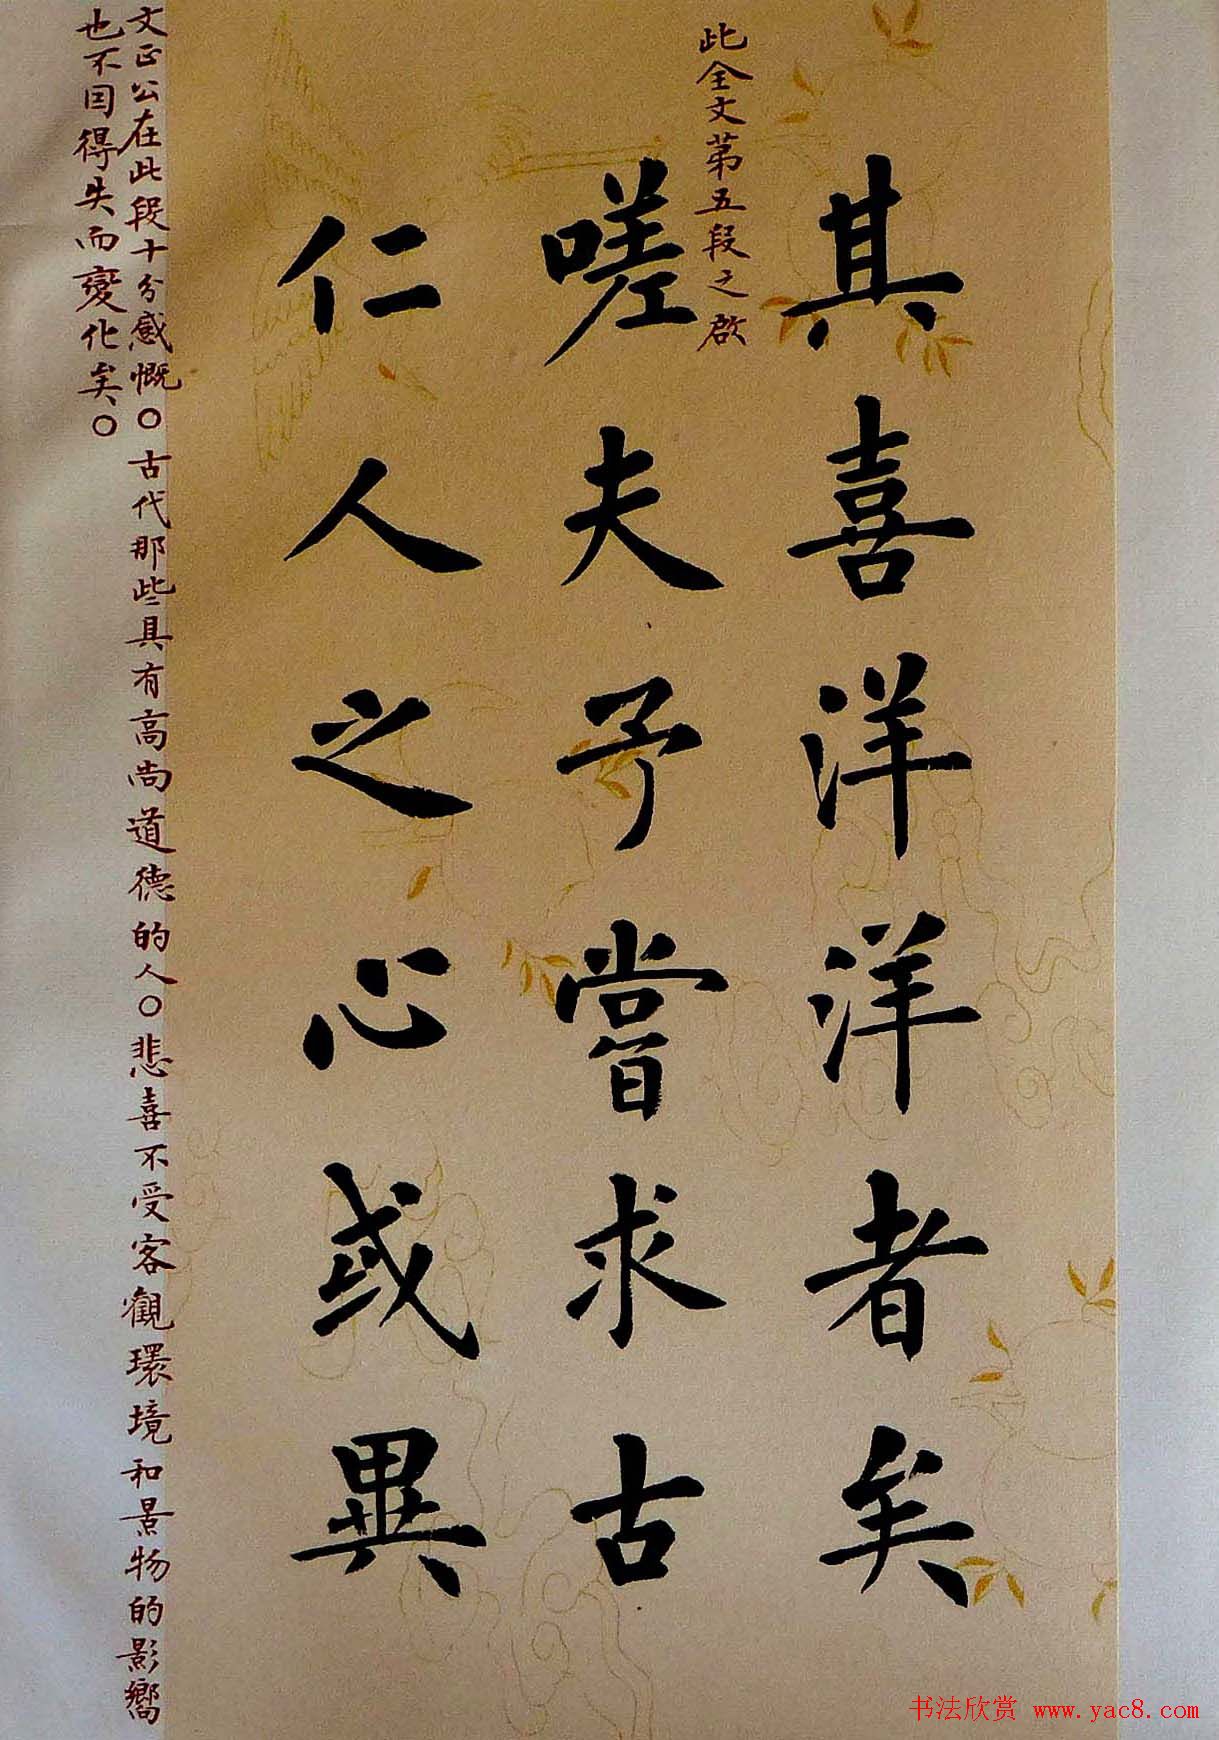 其喜洋洋者矣
此全文第五段之啟
嗟夫予嘗求古
仁人之心或異
文正公在此段十分感慨○古代那些具有高尚道德的人○悲喜不受客觀環境和景物的影嚮
也不因得失而變化矣○
书法欣赏 www.yac8.com